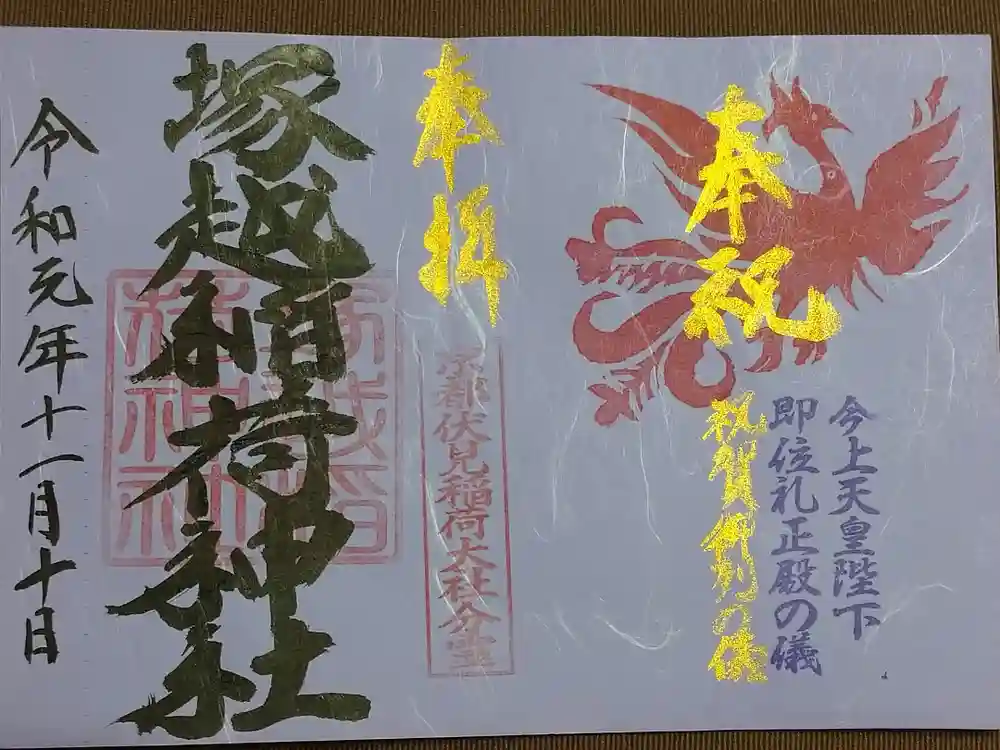 奉祝
今上天皇陛下
即位礼正殿の儀
祝賀御列の儀
奉拝
京都伏見稲荷大社分霊
塚越稲荷神社
塚越稲荷神社
令和元年十一月十日